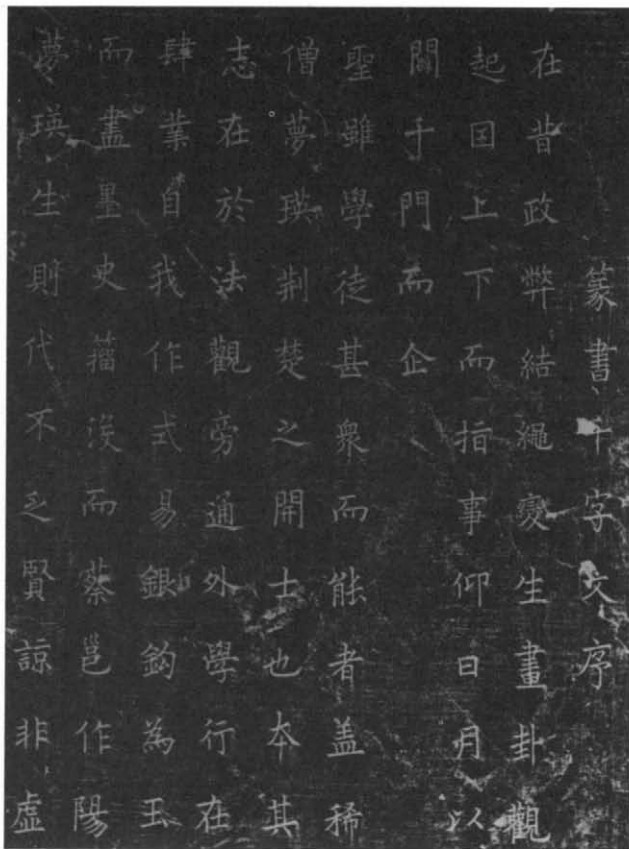 篆書千字文序
在昔政弊結繩變生畫卦觀
起囙上下而指事仰日月以
于門而企
聖雖學徒甚衆而能者盖稀
僧夢瑛荆楚之開士也夲其
志在於法觀旁通外學行在
肆業自我作式易銀鈎為玉
而盡墨史籀没而蔡邕作陽
夢瑛生則代不乏賢諒非虛